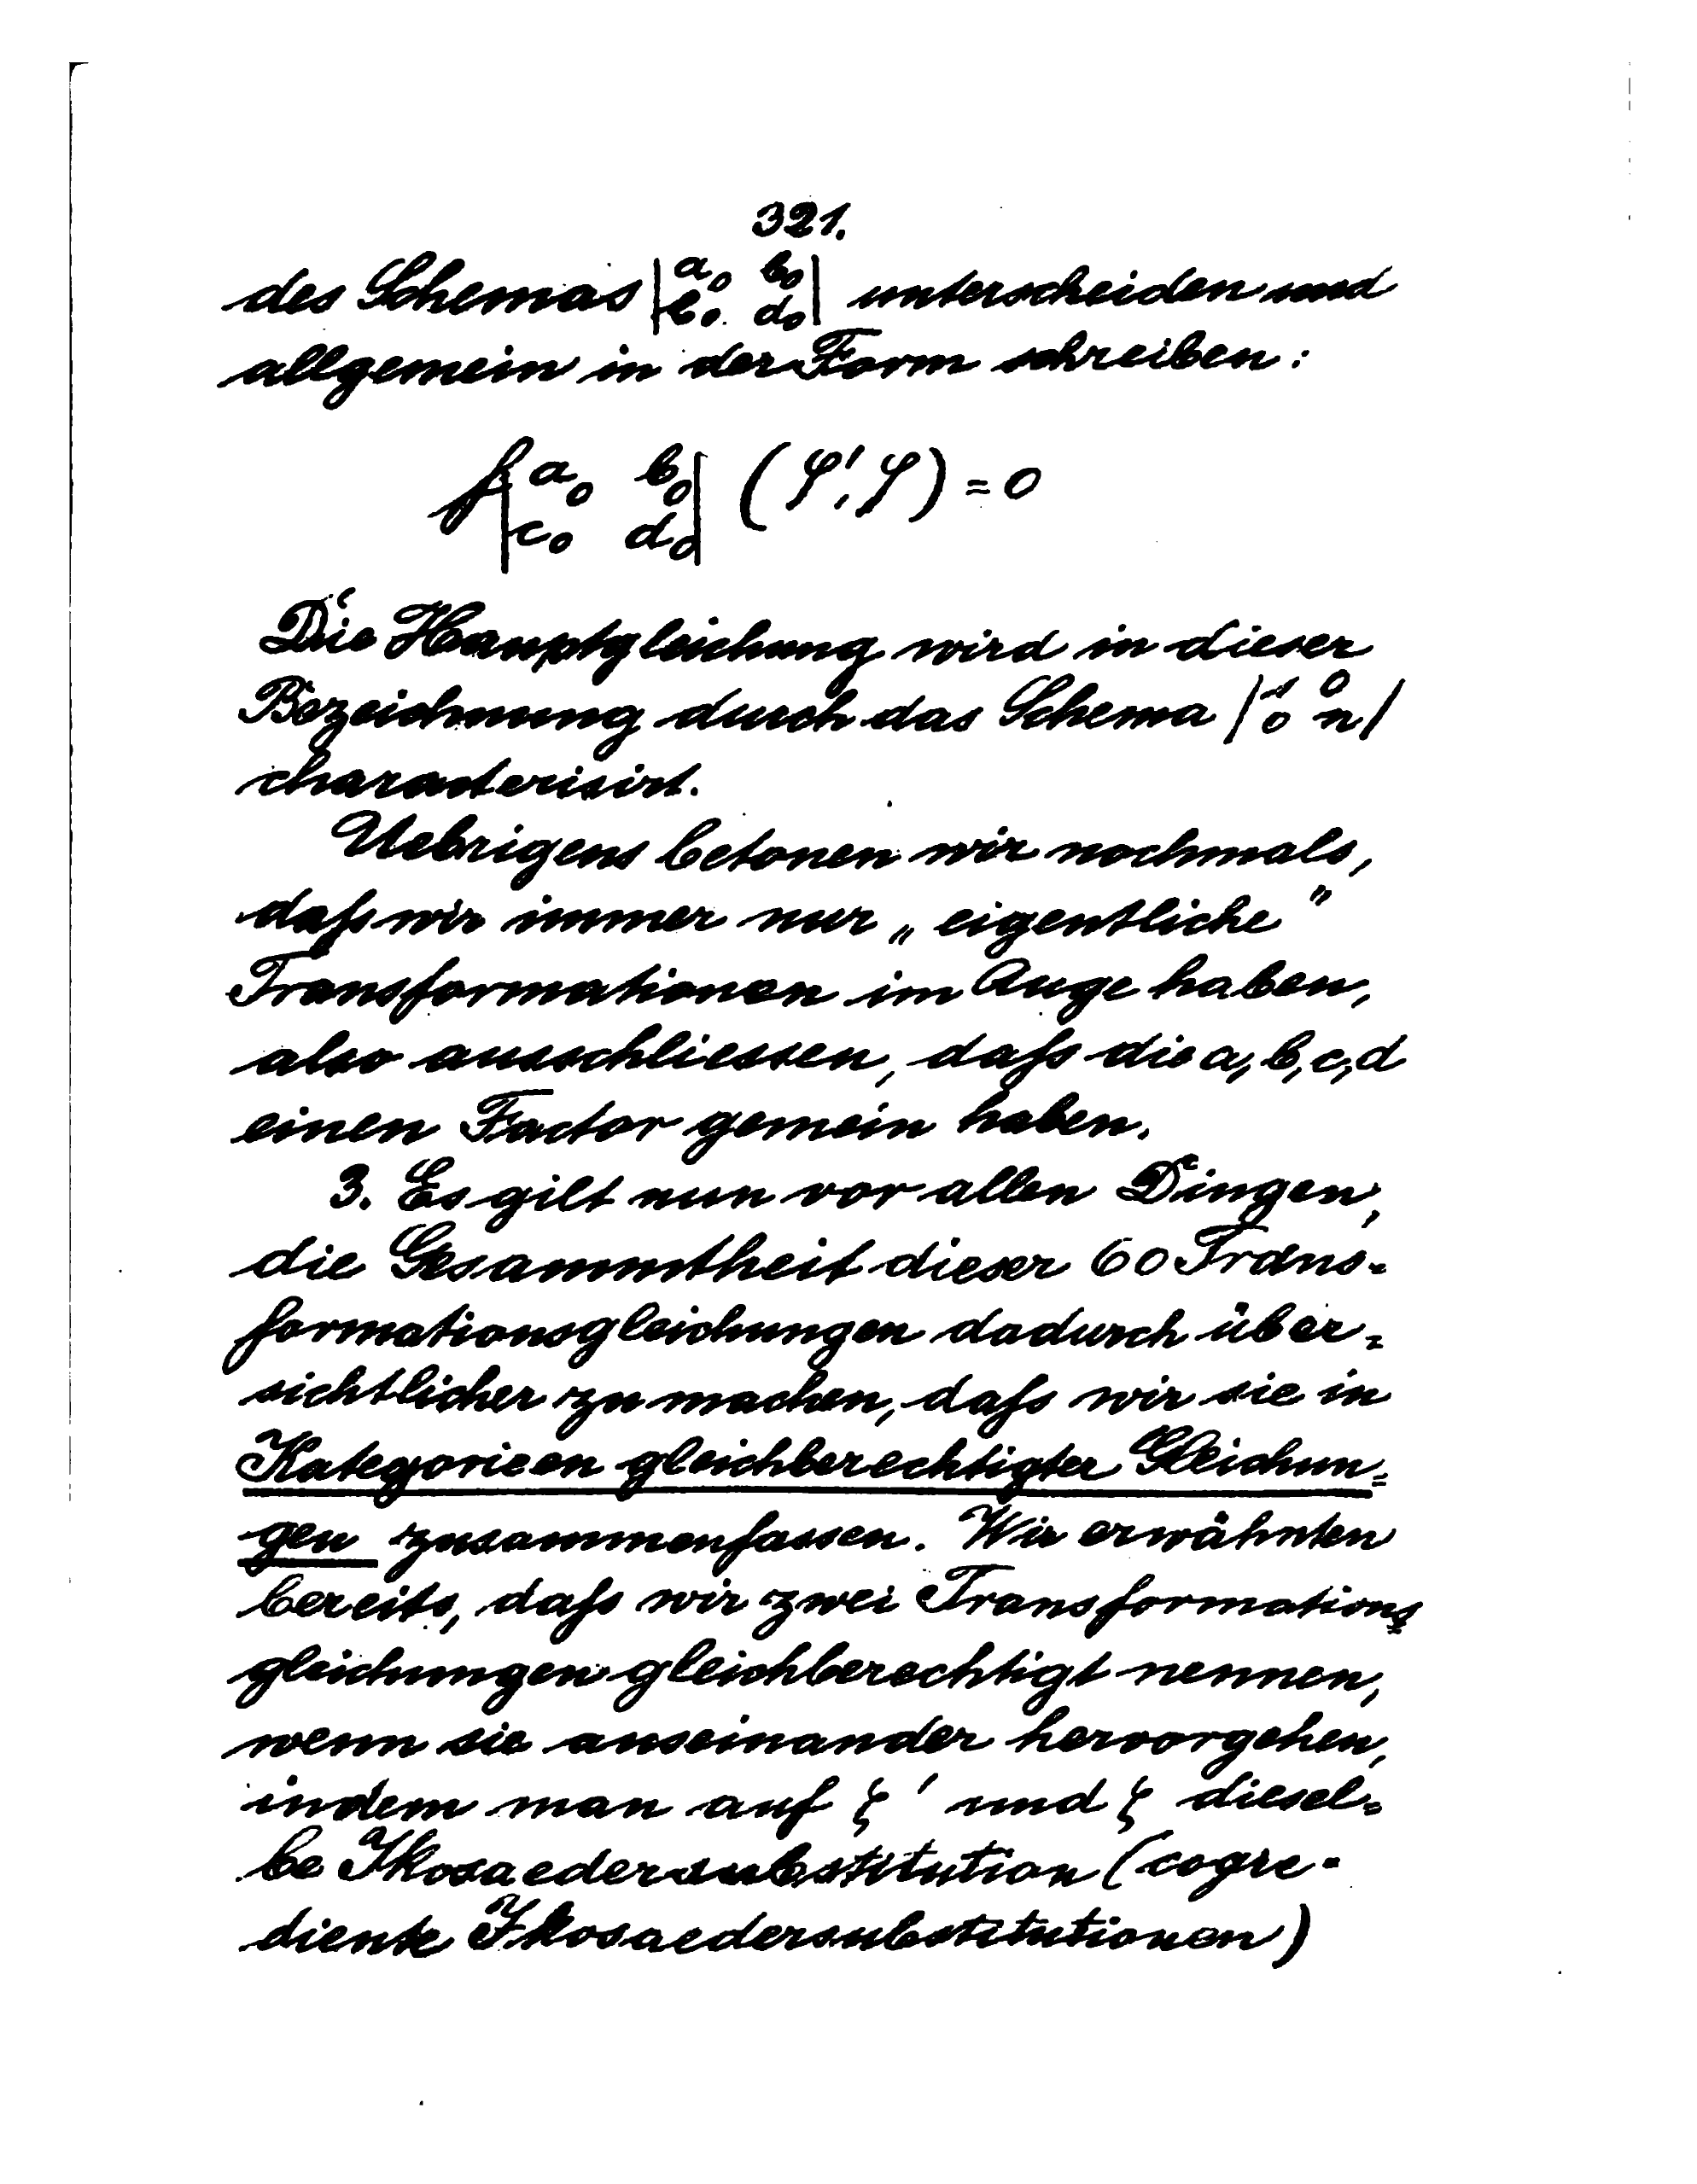 321.
des Schemas |a₀ b₀ / c₀ d₀| unterscheiden und
allgemein in der Form schreiben:
f|a₀ b₀ / c₀ d₀| (φ', φ) = 0
Die Hauptgleichung wird in dieser
Bezeichnung durch das Schema |1 0 / 0 n|
characterisirt.
Uebrigens betonen wir nochmals,
daſs wir immer nur „eigentliche”
Transformationen im Auge haben,
also ausschliessen, daſs die a, b, c, d
einen Factor gemein haben.
3. Es gilt nun vor allen Dingen,
die Gesammtheit dieser 60 Trans-
formationsgleichungen dadurch über-
sichtlicher zu machen, daſs wir sie in
Kategorieen gleichberechtigter Gleichun-
gen zusammenfassen. Wir erwähnten
bereits, daſs wir zwei Transformations-
gleichungen gleichberechtigt nennen,
wenn sie auseinander hervorgehen,
indem man auf ζ' und ζ diesel-
be Ikosaedersubstitution (cogre-
diente Ikosaedersubstitutionen)